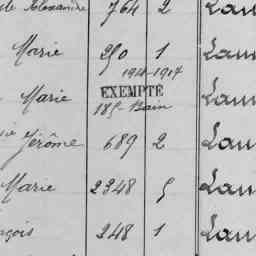 Alexandre 764 2 Lau
Marie 290 1 Lau
1914-1917
EXEMPTÉ
Marie 185 - Bain Lau
Jérôme 689 2 Lau
Marie 2348 5 Lau
çois 248 1 Lau